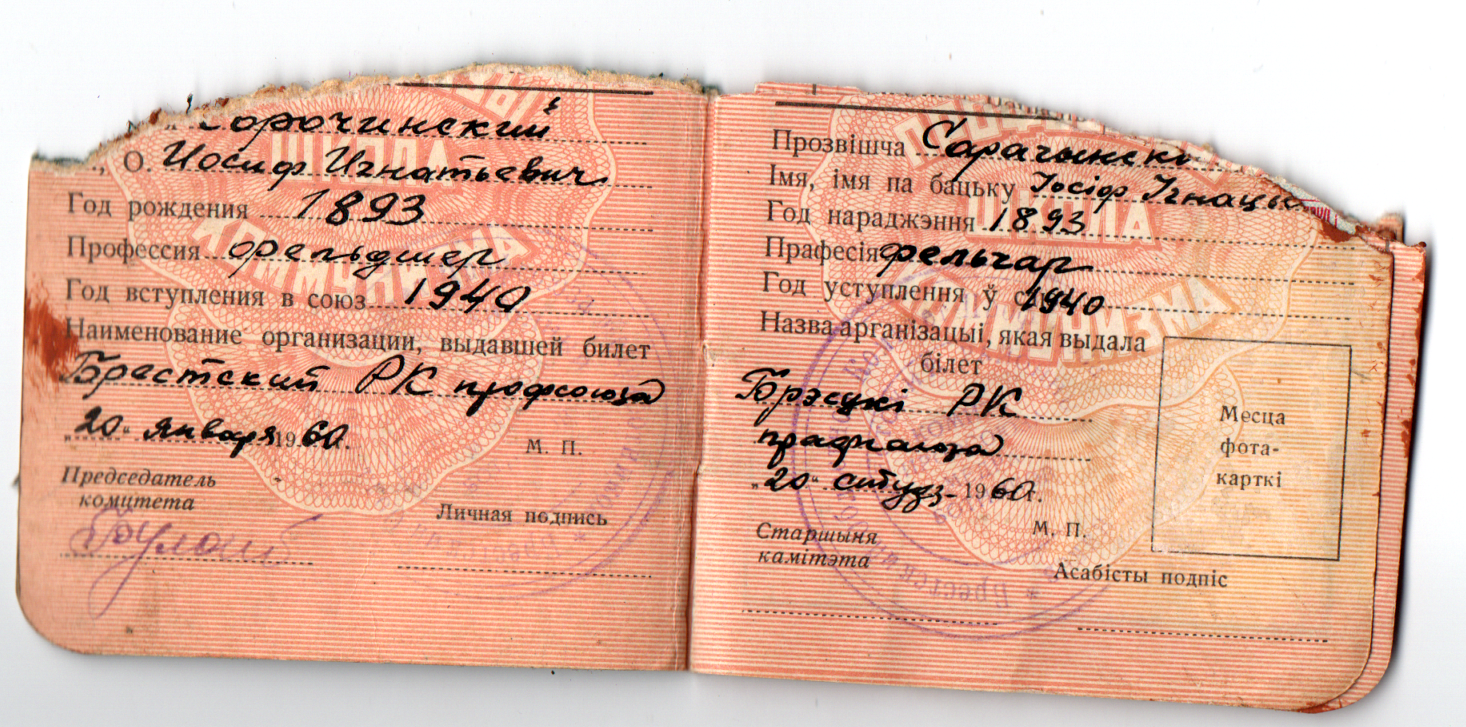 Сорочинский
О. Иосиф Игнатьевич
Год рождения 1893
Профессия фельдшер
Год вступления в союз 1940
Наименование организации, выдавшей билет
Брестский РК профсоюза
"20" января 1960г.
М. П.
Председатель
комитета
Личная подпись
ШКОЛА
КОММУНИЗМА
Прозвішча Сарачынски
Імя, імя па бацьку Іосіф Ігнацьев
Год нараджэння 1893
Прафесія фельчар
Год уступлення ў с 1940
Назва арганізацыі, якая выдала
білет
Брэсцкі РК
прафсаюза
"20" студз. 1960г.
М. П.
Старшыня
камітэта
Асабісты подпіс
Месца
фота-
карткі
ШКОЛА
КОММУНИЗМА